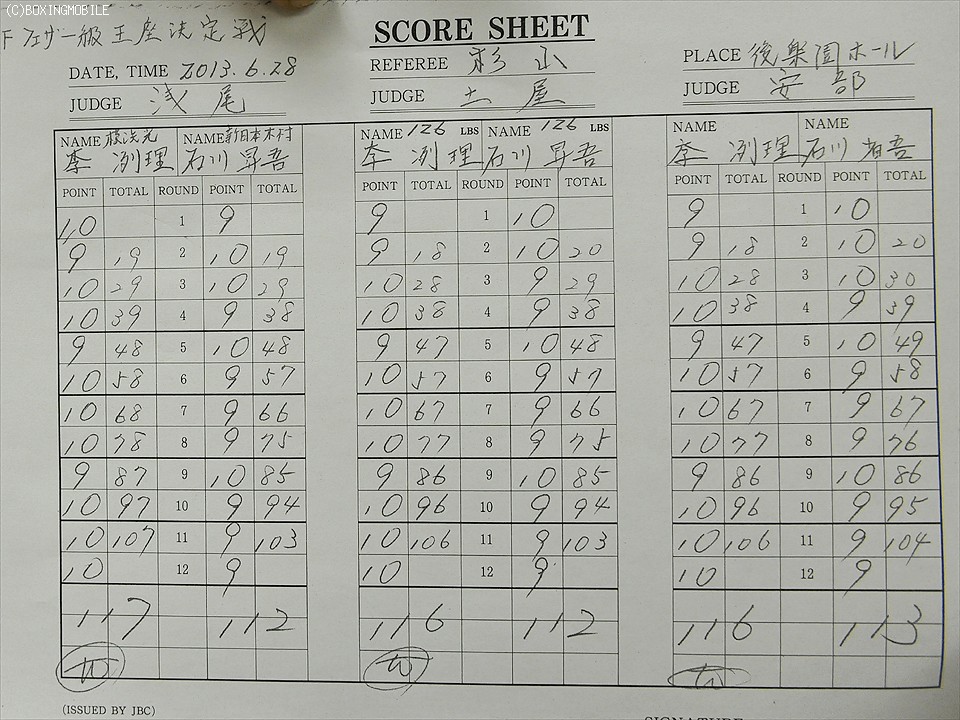 (C)BOXINGMOBILE
下フェザー級王座決定戦
SCORE SHEET
DATE, TIME 2013.6.28 REFEREE 杉山 PLACE 後楽園ホール
JUDGE 浅尾 JUDGE 土屋 JUDGE 安部
NAME 横浜光 NAME 新日本木村 NAME 126 LBS NAME 126 LBS NAME NAME
李 冽理 石川 昇吾 李 冽理 石川 昇吾 李 冽理 石川 昇吾
POINT TOTAL ROUND POINT TOTAL POINT TOTAL ROUND POINT TOTAL POINT TOTAL ROUND POINT TOTAL
10 1 9 9 1 10 9 1 10
9 19 2 10 19 9 18 2 10 20 9 18 2 10 20
10 29 3 10 29 10 28 3 9 29 10 28 3 10 30
10 39 4 9 38 10 38 4 9 38 10 38 4 9 39
9 48 5 10 48 9 47 5 10 48 9 47 5 10 49
10 58 6 9 57 10 57 6 9 57 10 57 6 9 58
10 68 7 9 66 10 67 7 9 66 10 67 7 9 67
10 78 8 9 75 10 77 8 9 75 10 77 8 9 76
9 87 9 10 85 9 86 9 10 85 9 86 9 10 86
10 97 10 9 94 10 96 10 9 94 10 96 10 9 95
10 107 11 9 103 10 106 11 9 103 10 106 11 9 104
10 12 9 10 12 9 10 12 9
117 112 116 112 116 113
W W W
(ISSUED BY JBC)
SIGNATURE